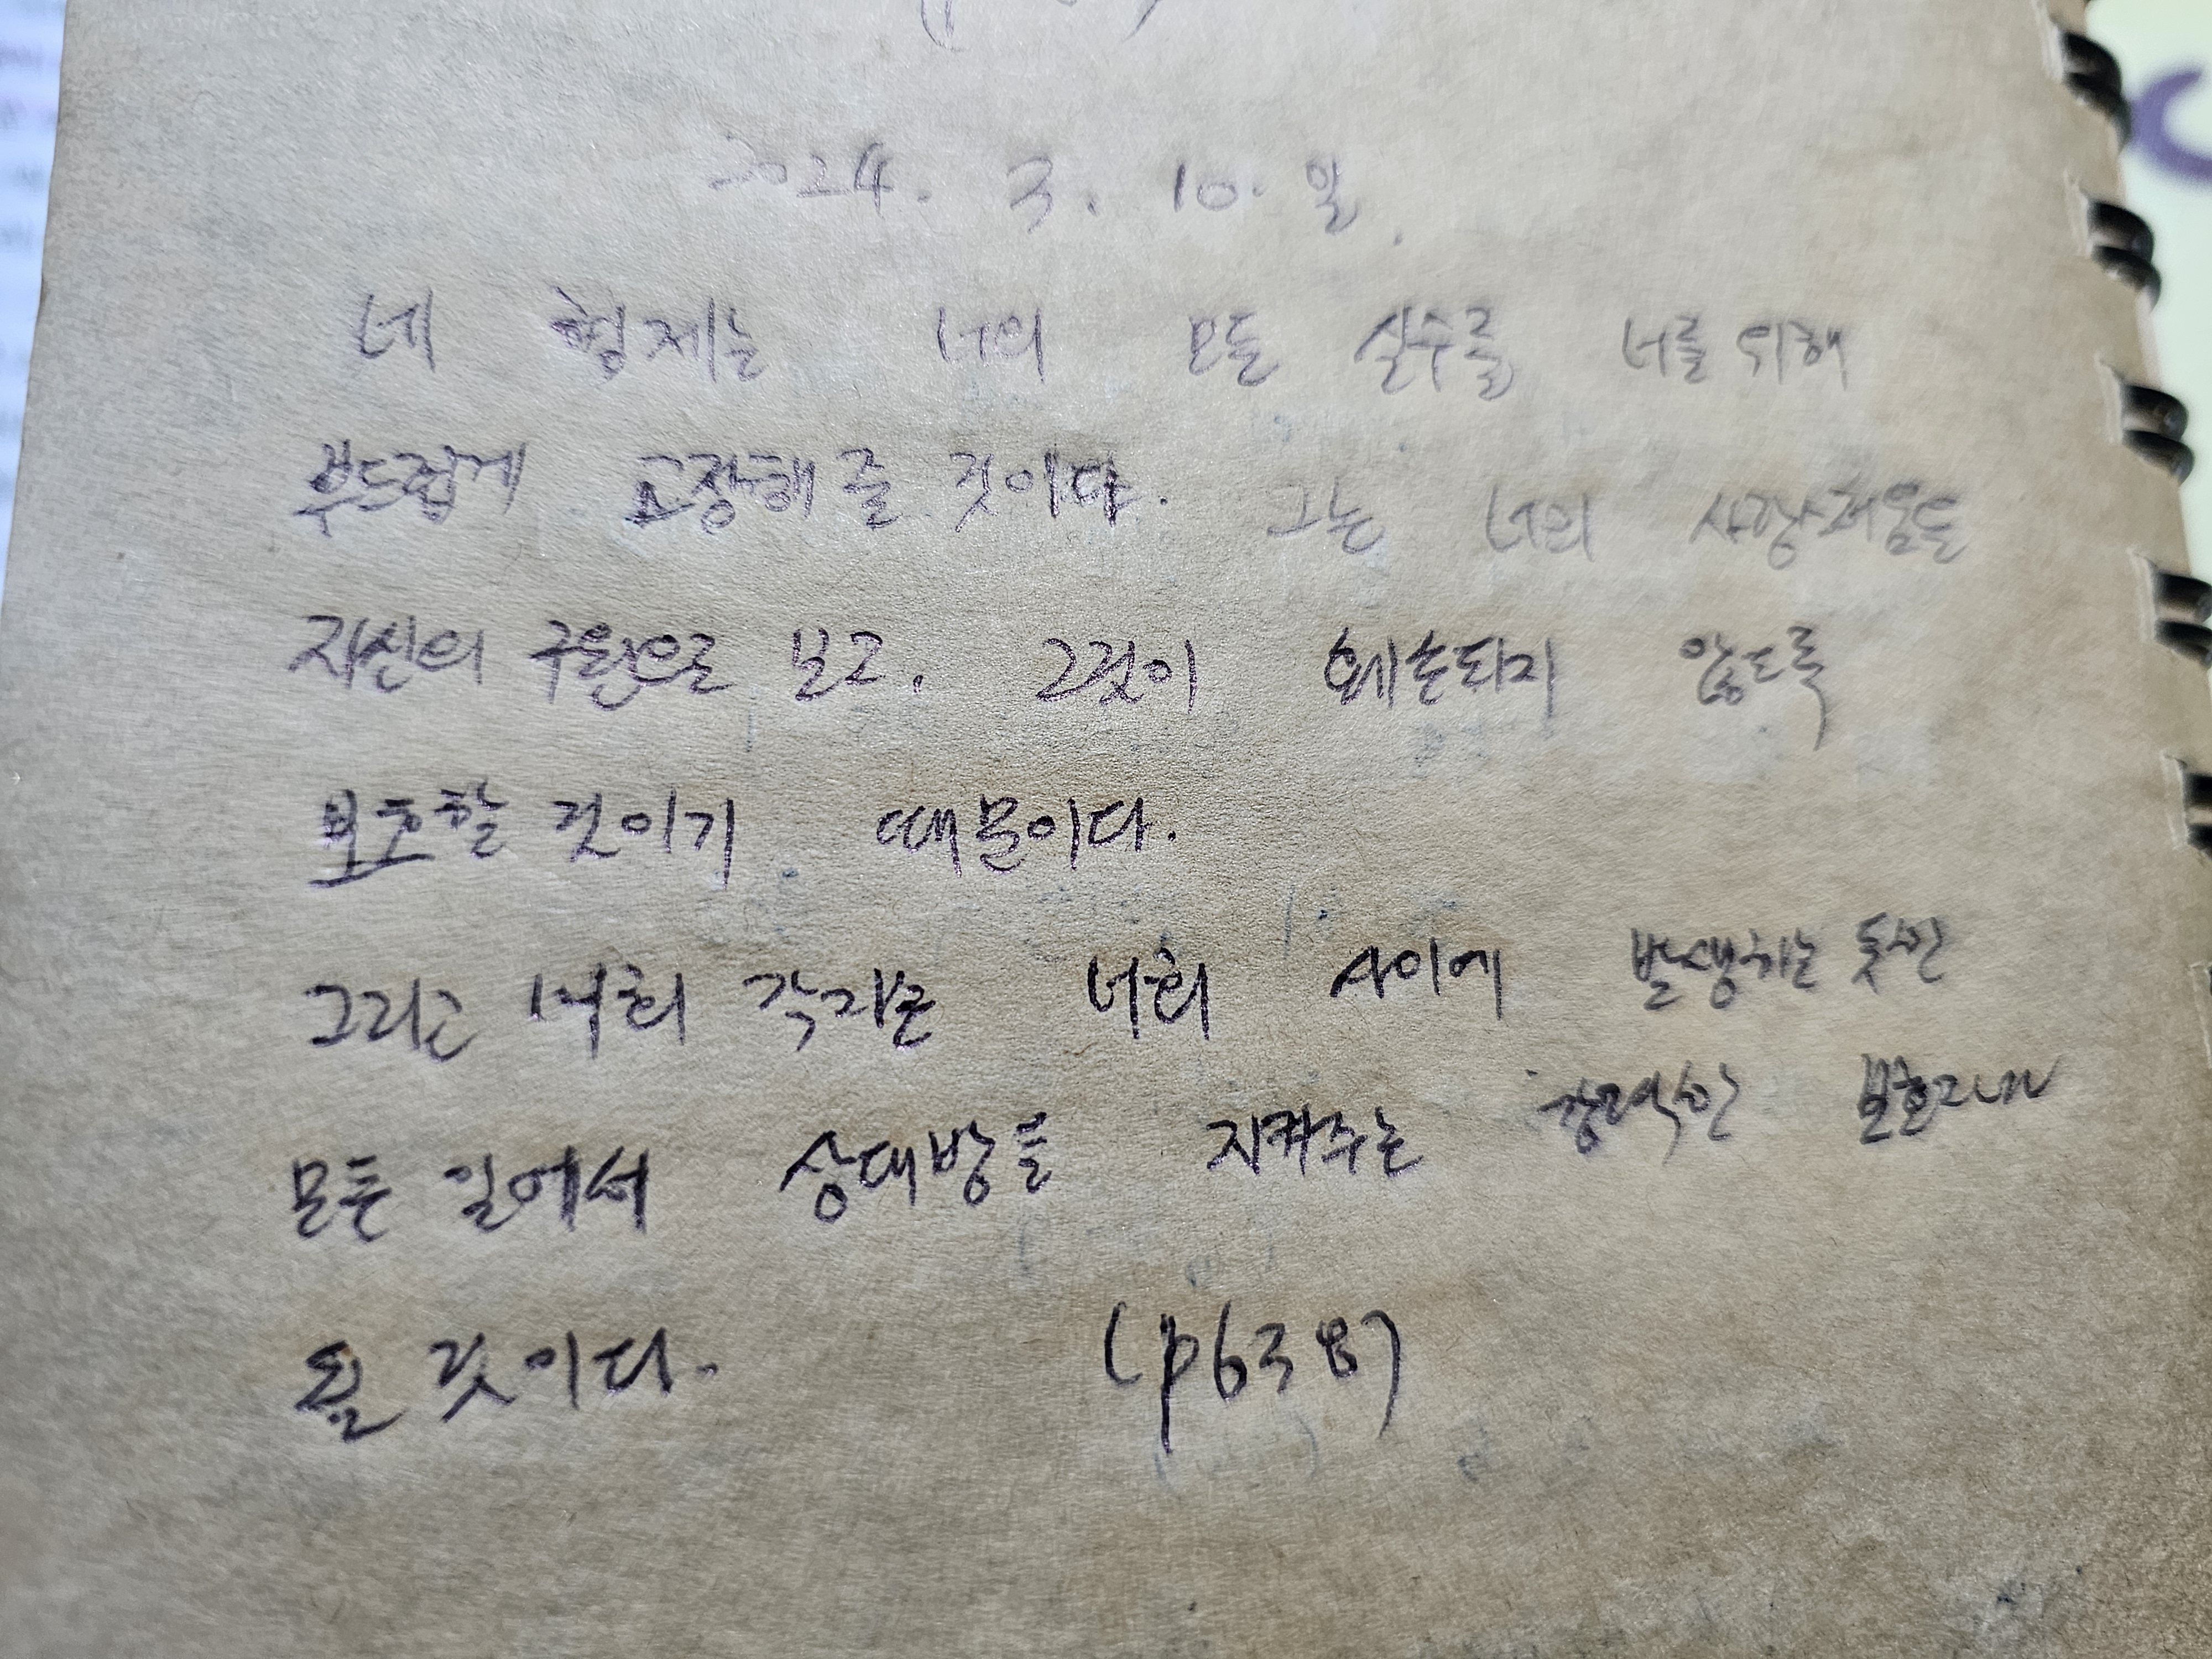 2024. 3. 10. 일.
네 형제는 너의 모든 실수를 너를 위해
부드럽게 교정해 줄 것이다. 그는 너의 사랑스러움을
자신의 구원으로 보고, 그것이 훼손되지 않도록
보호할 것이기 때문이다.
그리고 너희 각자는 너희 사이에 발생하는 듯한
모든 일에서 상대방을 지켜주는 강력한 보호자가
될 것이다. (p638)